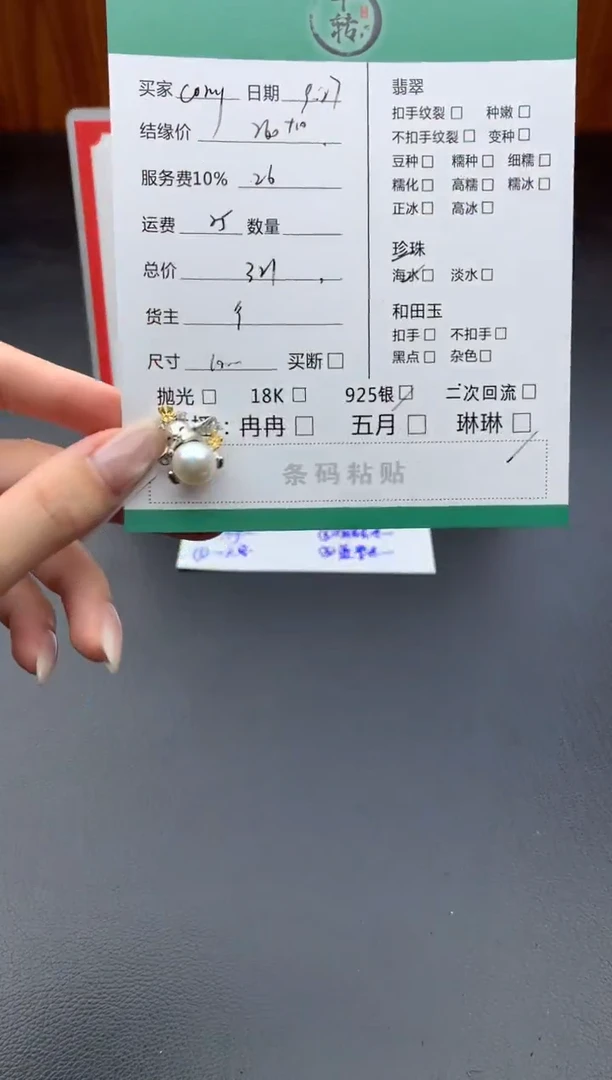 转
买家 cony 日期 9.27
结缘价 260+10
服务费10% 26
运费 25 数量
总价 321
货主
尺寸 买断□
翡翠
扣手纹裂□ 种嫩□
不扣手纹裂□ 变种□
豆种□ 糯种□ 细糯□
糯化□ 高糯□ 糯冰□
正冰□ 高冰□
珍珠
海水□ 淡水□
和田玉
扣手□ 不扣手□
黑点□ 杂色□
抛光□ 18K□ 925银□ 二次回流□
：冉冉□ 五月□ 琳琳□
条码粘贴